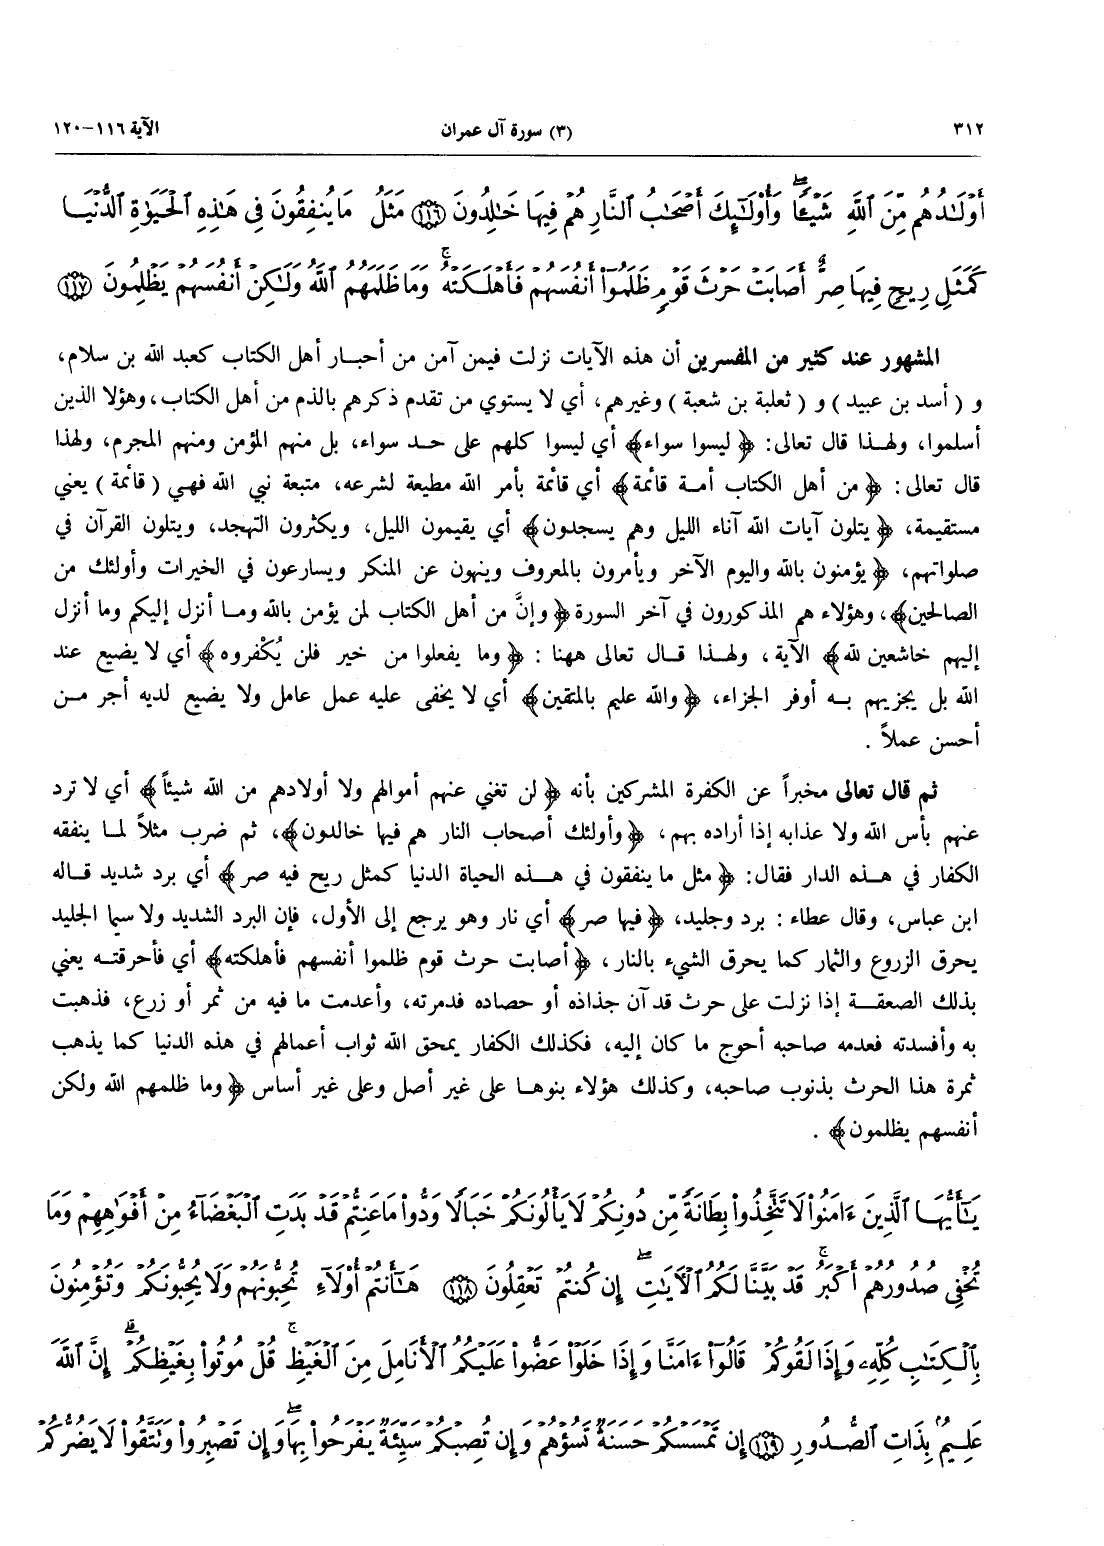 ٣١٢ (٣) سورة آل عمران الآية ١١٦-١٢٠
أَوْلَٰدُهُم مِّنَ ٱللَّهِ شَيْـًٔا ۖ وَأُو۟لَٰٓئِكَ أَصْحَٰبُ ٱلنَّارِ هُمْ فِيهَا خَٰلِدُونَ ١١٦ مَثَلُ مَا يُنفِقُونَ فِى هَٰذِهِ ٱلْحَيَوٰةِ ٱلدُّنْيَا
كَمَثَلِ رِيحٍ فِيهَا صِرٌّ أَصَابَتْ حَرْثَ قَوْمٍ ظَلَمُوٓا۟ أَنفُسَهُمْ فَأَهْلَكَتْهُ ۚ وَمَا ظَلَمَهُمُ ٱللَّهُ وَلَٰكِنْ أَنفُسَهُمْ يَظْلِمُونَ ١١٧
المشهور عند كثير من المفسرين أن هذه الآيات نزلت فيمن آمن من أحبار أهل الكتاب كعبد الله بن سلام،
و ( أسد بن عبيد ) و ( ثعلبة بن شعبة ) وغيرهم، أي لا يستوي من تقدم ذكرهم بالذم من أهل الكتاب، وهؤلا الذين
أسلموا، ولهذا قال تعالى: ﴿ ليسوا سواء﴾ أي ليسوا كلهم على حد سواء، بل منهم المؤمن ومنهم المجرم، ولهذا
قال تعالى: ﴿ من أهل الكتاب أمة قائمة﴾ أي قائمة بأمر الله مطيعة لشرعه، متبعة نبي الله فهي ( قائمة ) يعني
مستقيمة، ﴿ يتلون آيات الله آناء الليل وهم يسجدون﴾ أي يقيمون الليل، ويكثرون التهجد، ويتلون القرآن في
صلواتهم، ﴿ يؤمنون بالله واليوم الآخر ويأمرون بالمعروف وينهون عن المنكر ويسارعون في الخيرات وأولئك من
الصالحين﴾، وهؤلاء هم المذكورون في آخر السورة ﴿ وإنَّ من أهل الكتاب لمن يؤمن بالله وما أنزل إليكم وما أنزل
إليهم خاشعين لله﴾ الآية، ولهذا قال تعالى ههنا : ﴿ وما يفعلوا من خير فلن يُكْفروه﴾ أي لا يضيع عند
الله بل يجزيهم به أوفر الجزاء، ﴿ والله عليم بالمتقين﴾ أي لا يخفى عليه عمل عامل ولا يضيع لديه أجر من
أحسن عملاً .
ثم قال تعالى مخبراً عن الكفرة المشركين بأنه ﴿ لن تغني عنهم أموالهم ولا أولادهم من الله شيئاً﴾ أي لا ترد
عنهم بأس الله ولا عذابه إذا أراده بهم، ﴿وأولئك أصحاب النار هم فيها خالدون﴾، ثم ضرب مثلاً لما ينفقه
الكفار في هذه الدار فقال: ﴿ مثل ما ينفقون في هذه الحياة الدنيا كمثل ريح فيه صر﴾ أي برد شديد قاله
ابن عباس، وقال عطاء : برد وجليد، ﴿فيها صر﴾ أي نار وهو يرجع إلى الأول، فإن البرد الشديد ولا سيما الجليد
يحرق الزروع والثمار كما يحرق الشيء بالنار، ﴿أصابت حرث قوم ظلموا أنفسهم فأهلكته﴾ أي فأحرقته يعني
بذلك الصعقة إذا نزلت على حرث قد آن جذاذه أو حصاده فدمرته، وأعدمت ما فيه من ثمر أو زرع، فذهبت
به وأفسدته فعدمه صاحبه أحوج ما كان إليه، فكذلك الكفار يمحق الله ثواب أعمالهم في هذه الدنيا كما يذهب
ثمرة هذا الحرث بذنوب صاحبه، وكذلك هؤلاء بنوها على غير أصل وعلى غير أساس ﴿ وما ظلمهم الله ولكن
أنفسهم يظلمون﴾ .
يَٰٓأَيُّهَا ٱلَّذِينَ ءَامَنُوا۟ لَا تَتَّخِذُوا۟ بِطَانَةً مِّن دُونِكُمْ لَا يَأْلُونَكُمْ خَبَالًا وَدُّوا۟ مَا عَنِتُّمْ قَدْ بَدَتِ ٱلْبَغْضَآءُ مِنْ أَفْوَٰهِهِمْ وَمَا
تُخْفِى صُدُورُهُمْ أَكْبَرُ ۚ قَدْ بَيَّنَّا لَكُمُ ٱلْءَايَٰتِ ۖ إِن كُنتُمْ تَعْقِلُونَ ١١٨ هَٰٓأَنتُمْ أُو۟لَآءِ تُحِبُّونَهُمْ وَلَا يُحِبُّونَكُمْ وَتُؤْمِنُونَ
بِٱلْكِتَٰبِ كُلِّهِۦ وَإِذَا لَقُوكُمْ قَالُوٓا۟ ءَامَنَّا وَإِذَا خَلَوْا۟ عَضُّوا۟ عَلَيْكُمُ ٱلْأَنَامِلَ مِنَ ٱلْغَيْظِ ۚ قُلْ مُوتُوا۟ بِغَيْظِكُمْ ۗ إِنَّ ٱللَّهَ
عَلِيمٌۢ بِذَاتِ ٱلصُّدُورِ ١١٩ إِن تَمْسَسْكُمْ حَسَنَةٌ تَسُؤْهُمْ وَإِن تُصِبْكُمْ سَيِّئَةٌ يَفْرَحُوا۟ بِهَا ۖ وَإِن تَصْبِرُوا۟ وَتَتَّقُوا۟ لَا يَضُرُّكُمْ